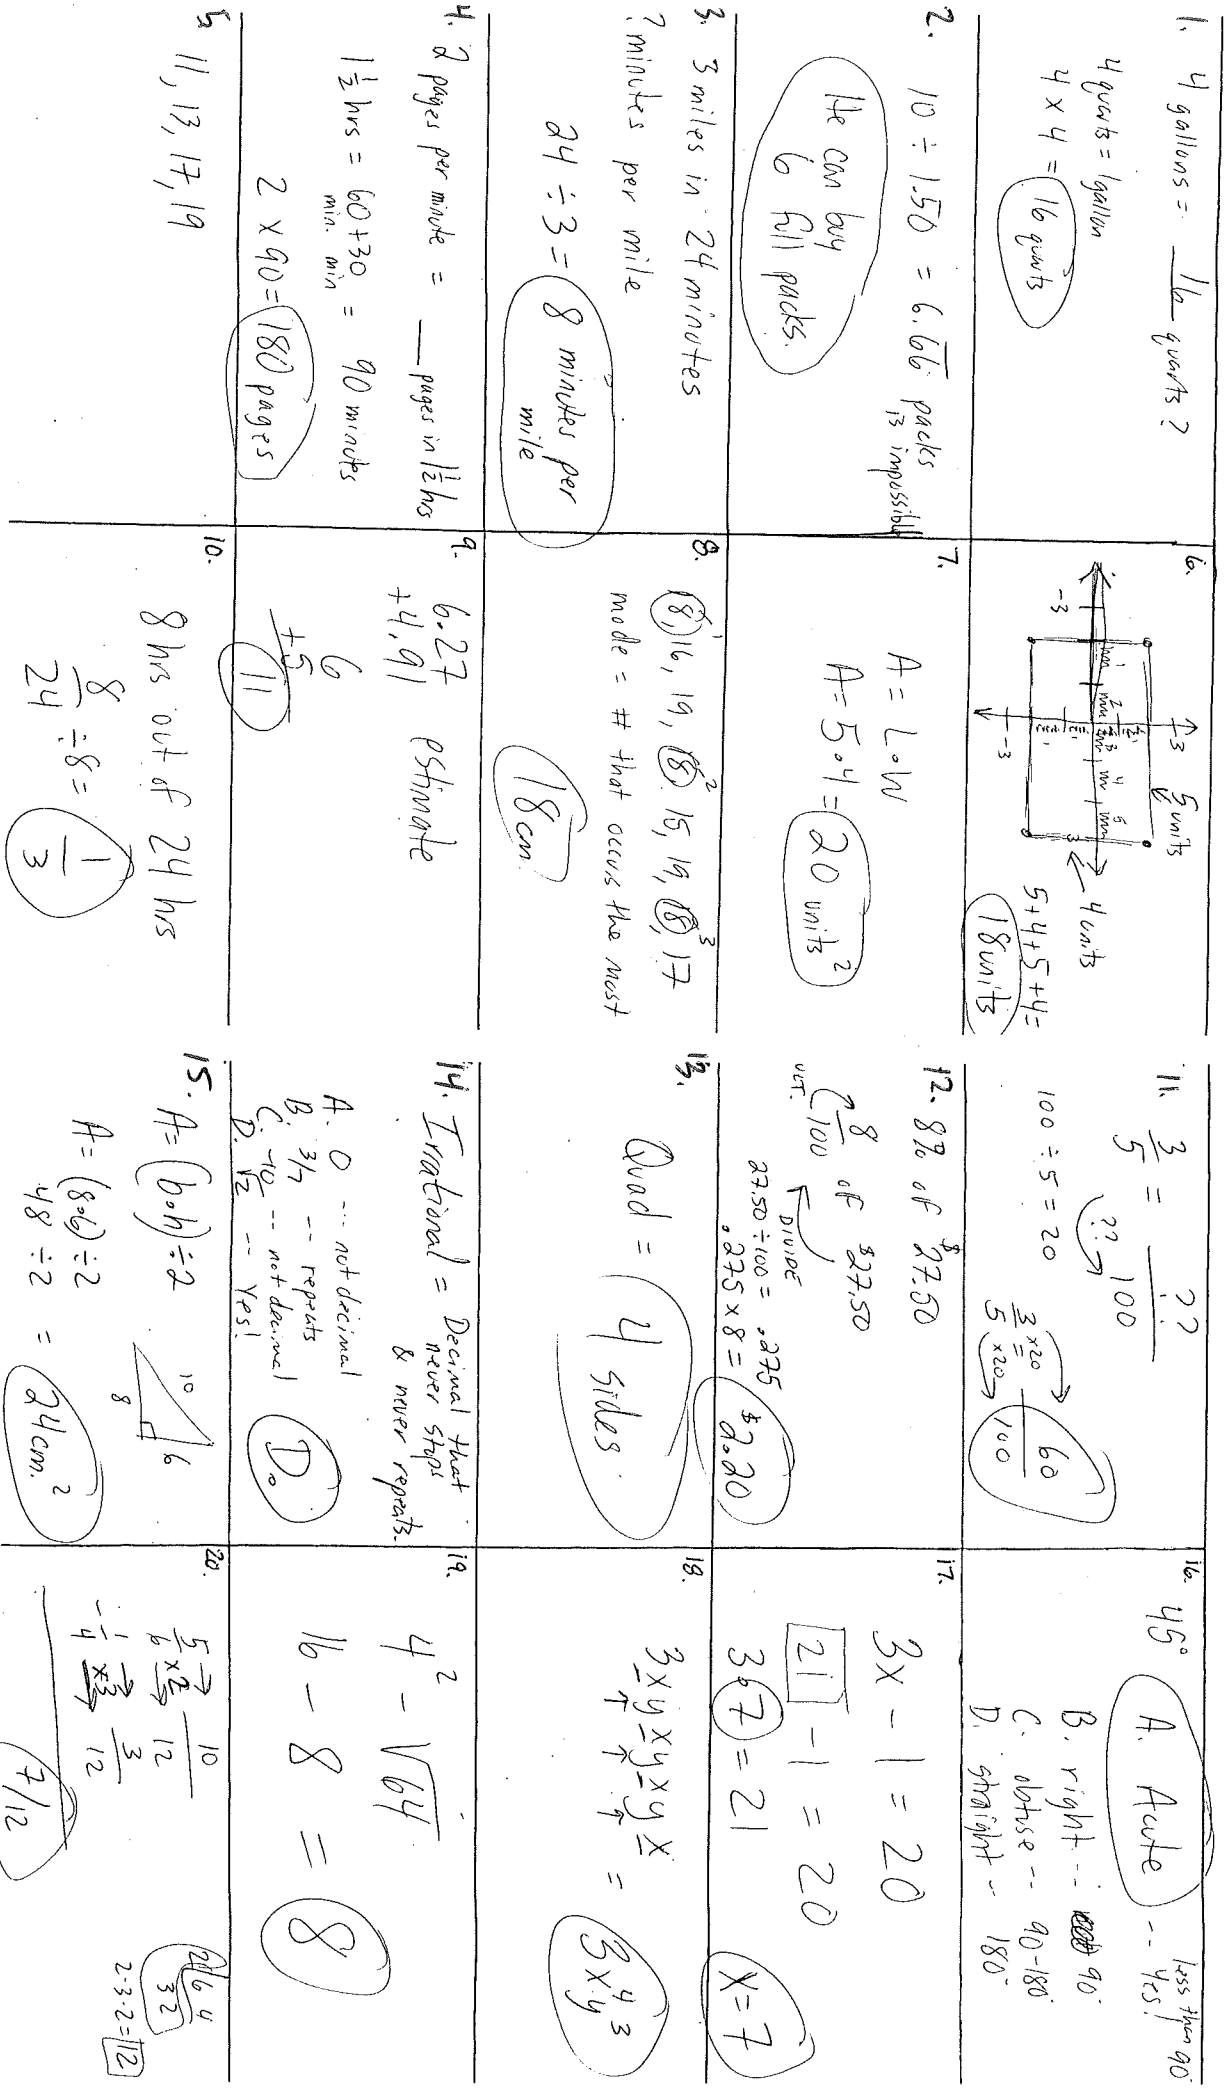 1. 4 gallons = 16 quarts?
4 quarts = 1 gallon
4 x 4 = 16 quarts
2. 10 ÷ 1.50 = 6.66 packs
is impossible
He can buy
6 full packs.
3. 3 miles in 24 minutes
? minutes per mile
24 ÷ 3 = 8 minutes per
mile
4. 2 pages per minute = __ pages in 1 1/2 hrs
1 1/2 hrs = 60+30 = 90 minutes
min. min
2 x 90 = 180 pages
5. 11, 13, 17, 19
6.
3
5 units
1 2 3 4 5
-3
3
4 units
-3
5+4+5+4=
18 units
7. A = L•W
A = 5•4 = 20 units²
8. 18, 16, 19, 18, 15, 19, 18, 17
1 2 3
mode = # that occurs the most
18 cm.
9. 6.27 estimate
+4.91
6
+5
11
10. 8 hrs out of 24 hrs
8/24 ÷ 8 = 1/3
11. 3/5 = ??/100
??
100 ÷ 5 = 20
3/5 x20 = x20 60/100
12. 8% of $27.50
8/100 of $27.50
DIVIDE
27.50 ÷ 100 = .275
.275 x 8 = $2.20
13. Quad = 4 sides.
14. Irrational = Decimal that
never stops
& never repeats.
A. 0 -- not decimal
B. 3/7 -- repeats
C. -10 -- not decimal
D. √2 -- Yes!
D.
15. A = (b•h) ÷ 2
10
6
8
A = (8•6) ÷ 2
48 ÷ 2 = 24 cm.²
16. 45°
less than 90°
A. Acute -- Yes!
B. right -- 90°
C. obtuse -- 90-180°
D. straight -- 180°
17. 3x - 1 = 20
21 - 1 = 20
3•7 = 21
x = 7
18. 3xyxyxyx =
3x⁴y³
19. 4² - √64
16 - 8 = 8
20. 5/6 x2 10/12
- 1/4 x3 3/12
7/12
2 6 4
3 2
2·3·2=12